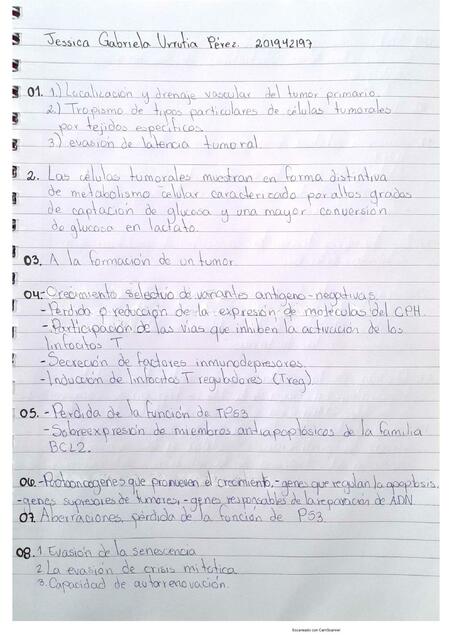 Jessica Gabriela Urrutia Pérez. 201942197
01. 1.) Localización y drenaje vascular del tumor primario.
2.) Tropismo de tipos particulares de células tumorales
por tejidos específicos.
3) evasión de latencia tumoral.
2. Las células tumorales muestran en forma distintiva
de metabolismo celular caracterizado por altos grados
de captación de glucosa y una mayor conversión
de glucosa en lactato.
03. A la formación de un tumor
04.-Crecimiento selectivo de variantes antígeno-negativas.
-Pérdida o reducción de la expresión de moléculas del CPH.
-Participación de las vías que inhiben la activación de los
linfocitos T
-Secreción de factores inmunodepresores.
-Inducción de linfocitos T reguladores (Treg)
05. -Pérdida de la función de TP53
-Sobreexpresión de miembros antiapoptósicos de la familia
BCL2.
06.-Protooncogenes que promueven el crecimiento,-genes que regulan la apoptosis.
-genes supresores de tumores, -genes responsables de la reparación de ADN
07. Aberraciones, pérdida de la función de P53.
08. 1. Evasión de la senescencia
2. La evasión de crisis mitótica
3. Capacidad de autorrenovación.
Escaneado con CamScanner